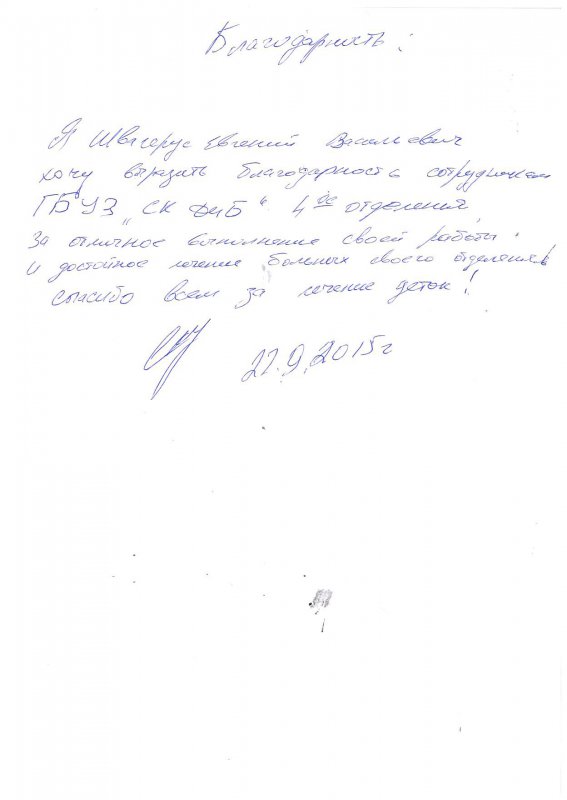 Благодарность:
Я Швагерус Евгений Васильевич
хочу выразить благодарность сотрудникам
ГБУЗ „СК ДИБ“ 4ое отделения,
за отличное выполнение своей работы.
и достойное лечение больных своего отделения!
Спасибо всем за лечение деток!
22.9.2015г